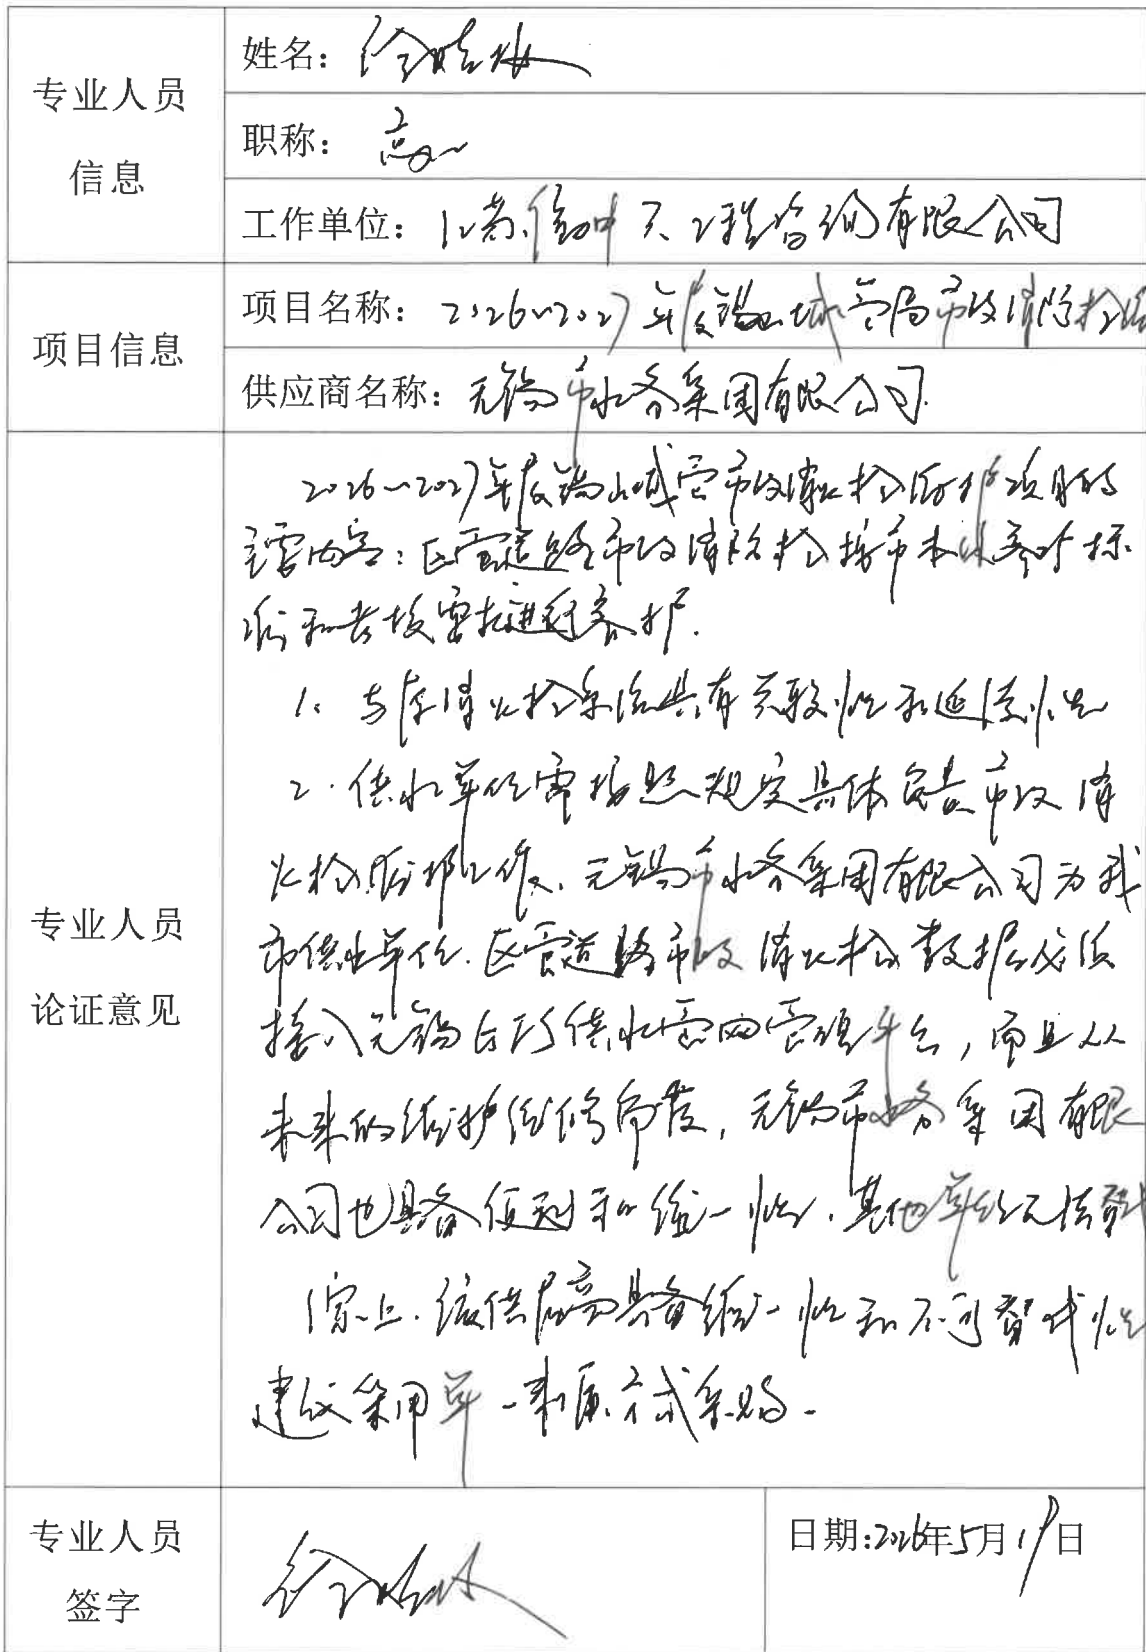 专业人员
信息
姓名：徐
职称：高工
工作单位：江苏中天工程咨询有限公司
项目信息
项目名称：2026~2027年度锡山城管局市政消防栓
供应商名称：无锡市水务集团有限公司.
专业人员
论证意见
2026~2027年度锡山城管市政消火栓维护项目的
主要内容：区管道路市政消防栓按市水务标
准和考核要求进行养护.
1. 与原消火栓系统具有关联性和延续性
2. 供水单位需按照规定具体负责市政消
火栓维护工作、无锡市水务集团有限公司为我
市供水单位.区管道路市政消火栓数据必须
接入无锡供水管网管理平台，而且从
未来的维护维修角度，无锡市水务集团有限
公司也具备便利和统一性，其他单位无法替代
综上.该供应商具备统一性和不可替代性
建议采用单一来源方式采购.
专业人员
签字
徐
日期:2026年5月19日